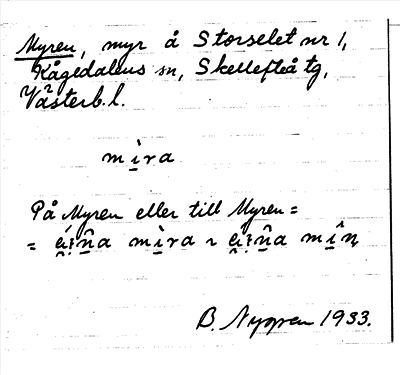 Myren, myr å Storselet nr 1,
Kågedalens sn, Skellefteå tg,
Västerb. l.
mi̱̇ra
På Myren eller till Myren =
B. Nygren 1933.